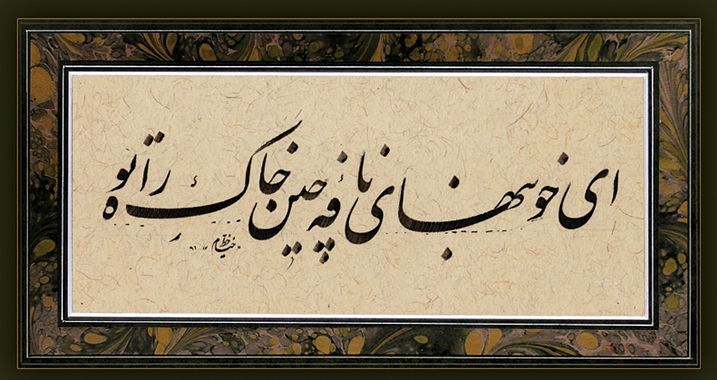 ای خونبهای نافهٔ چین خاک راه تو